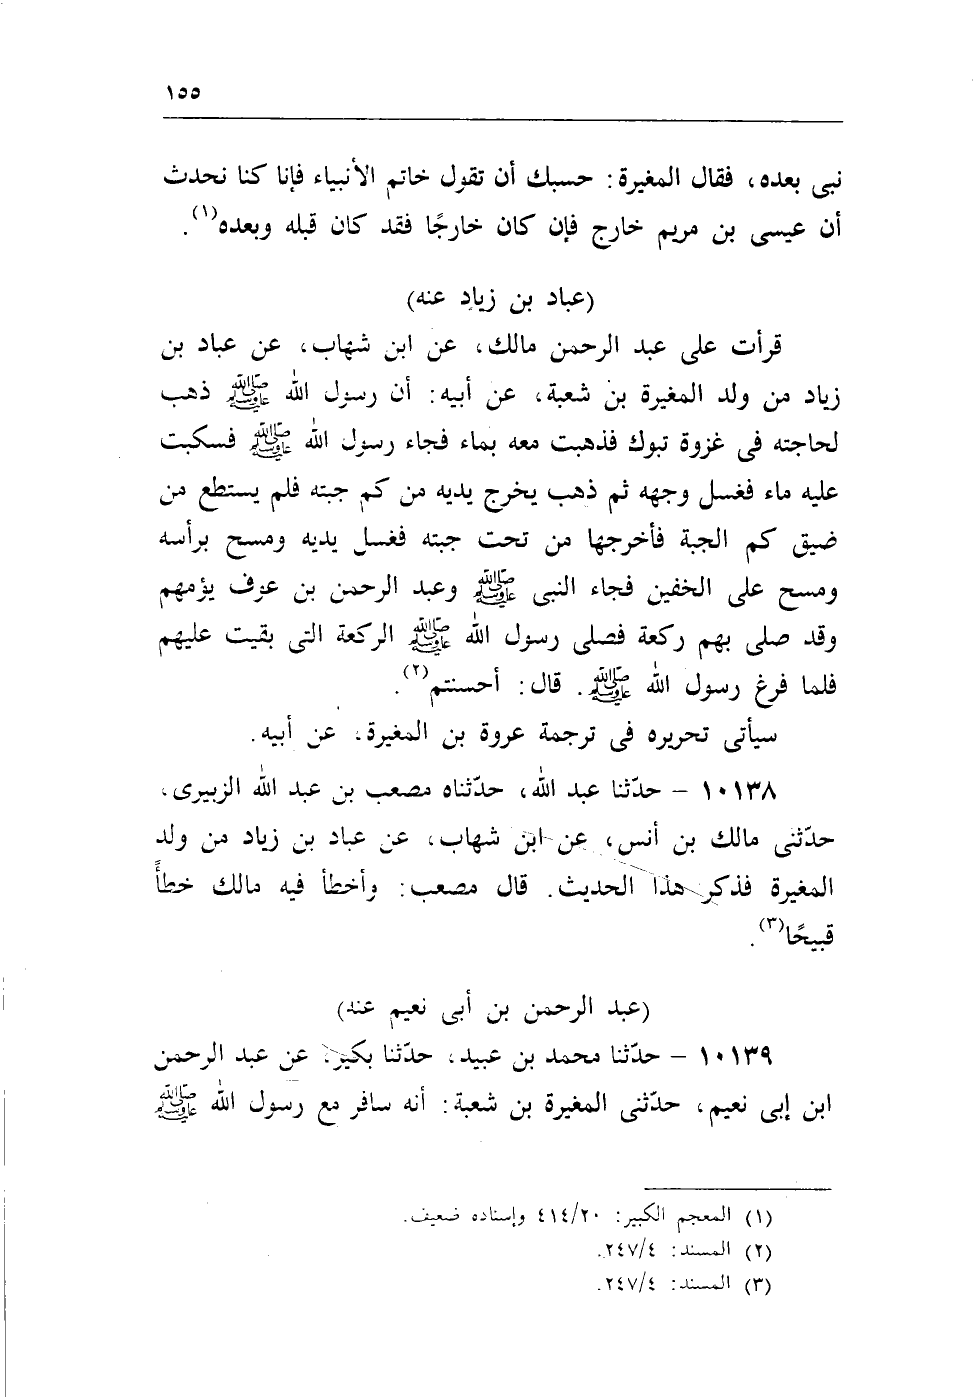 ١٥٥
نبى بعده، فقال المغيرة: حسبك أن تقول خاتم الأنبياء فإنا كنا نحدث
أن عيسى بن مريم خارج فإن كان خارجًا فقد كان قبله وبعده(١).
(عباد بن زياد عنه)
قرأت على عبد الرحمن مالك، عن ابن شهاب، عن عباد بن
زياد من ولد المغيرة بن شعبة، عن أبيه: أن رسول الله ﷺ ذهب
لحاجته فى غزوة تبوك فذهبت معه بماء فجاء رسول الله ﷺ فسكبت
عليه ماء فغسل وجهه ثم ذهب يخرج يديه من كم جبته فلم يستطع من
ضيق كم الجبة فأخرجها من تحت جبته فغسل يديه ومسح برأسه
ومسح على الخفين فجاء النبى ﷺ وعبد الرحمن بن عوف يؤمهم
وقد صلى بهم ركعة فصلى رسول الله ﷺ الركعة التى بقيت عليهم
فلما فرغ رسول الله ﷺ. قال: أحسنتم(٢).
سيأتى تحريره فى ترجمة عروة بن المغيرة، عن أبيه.
١٠١٣٨ - حدّثنا عبد الله، حدّثناه مصعب بن عبد الله الزبيرى،
حدّثنى مالك بن أنس، عن ابن شهاب، عن عباد بن زياد من ولد
المغيرة فذكر هذا الحديث. قال مصعب: وأخطأ فيه مالك خطأً
قبيحًا(٣).
(عبد الرحمن بن أبى نعيم عنه)
١٠١٣٩ - حدّثنا محمد بن عبيد، حدّثنا بكير، عن عبد الرحمن
ابن إبى نعيم، حدّثنى المغيرة بن شعبة: أنه سافر مع رسول الله ﷺ
(١) المعجم الكبير: ٤١٤/٢٠ وإسناده ضعيف.
(٢) المسند: ٢٤٧/٤.
(٣) المسند: ٢٤٧/٤.